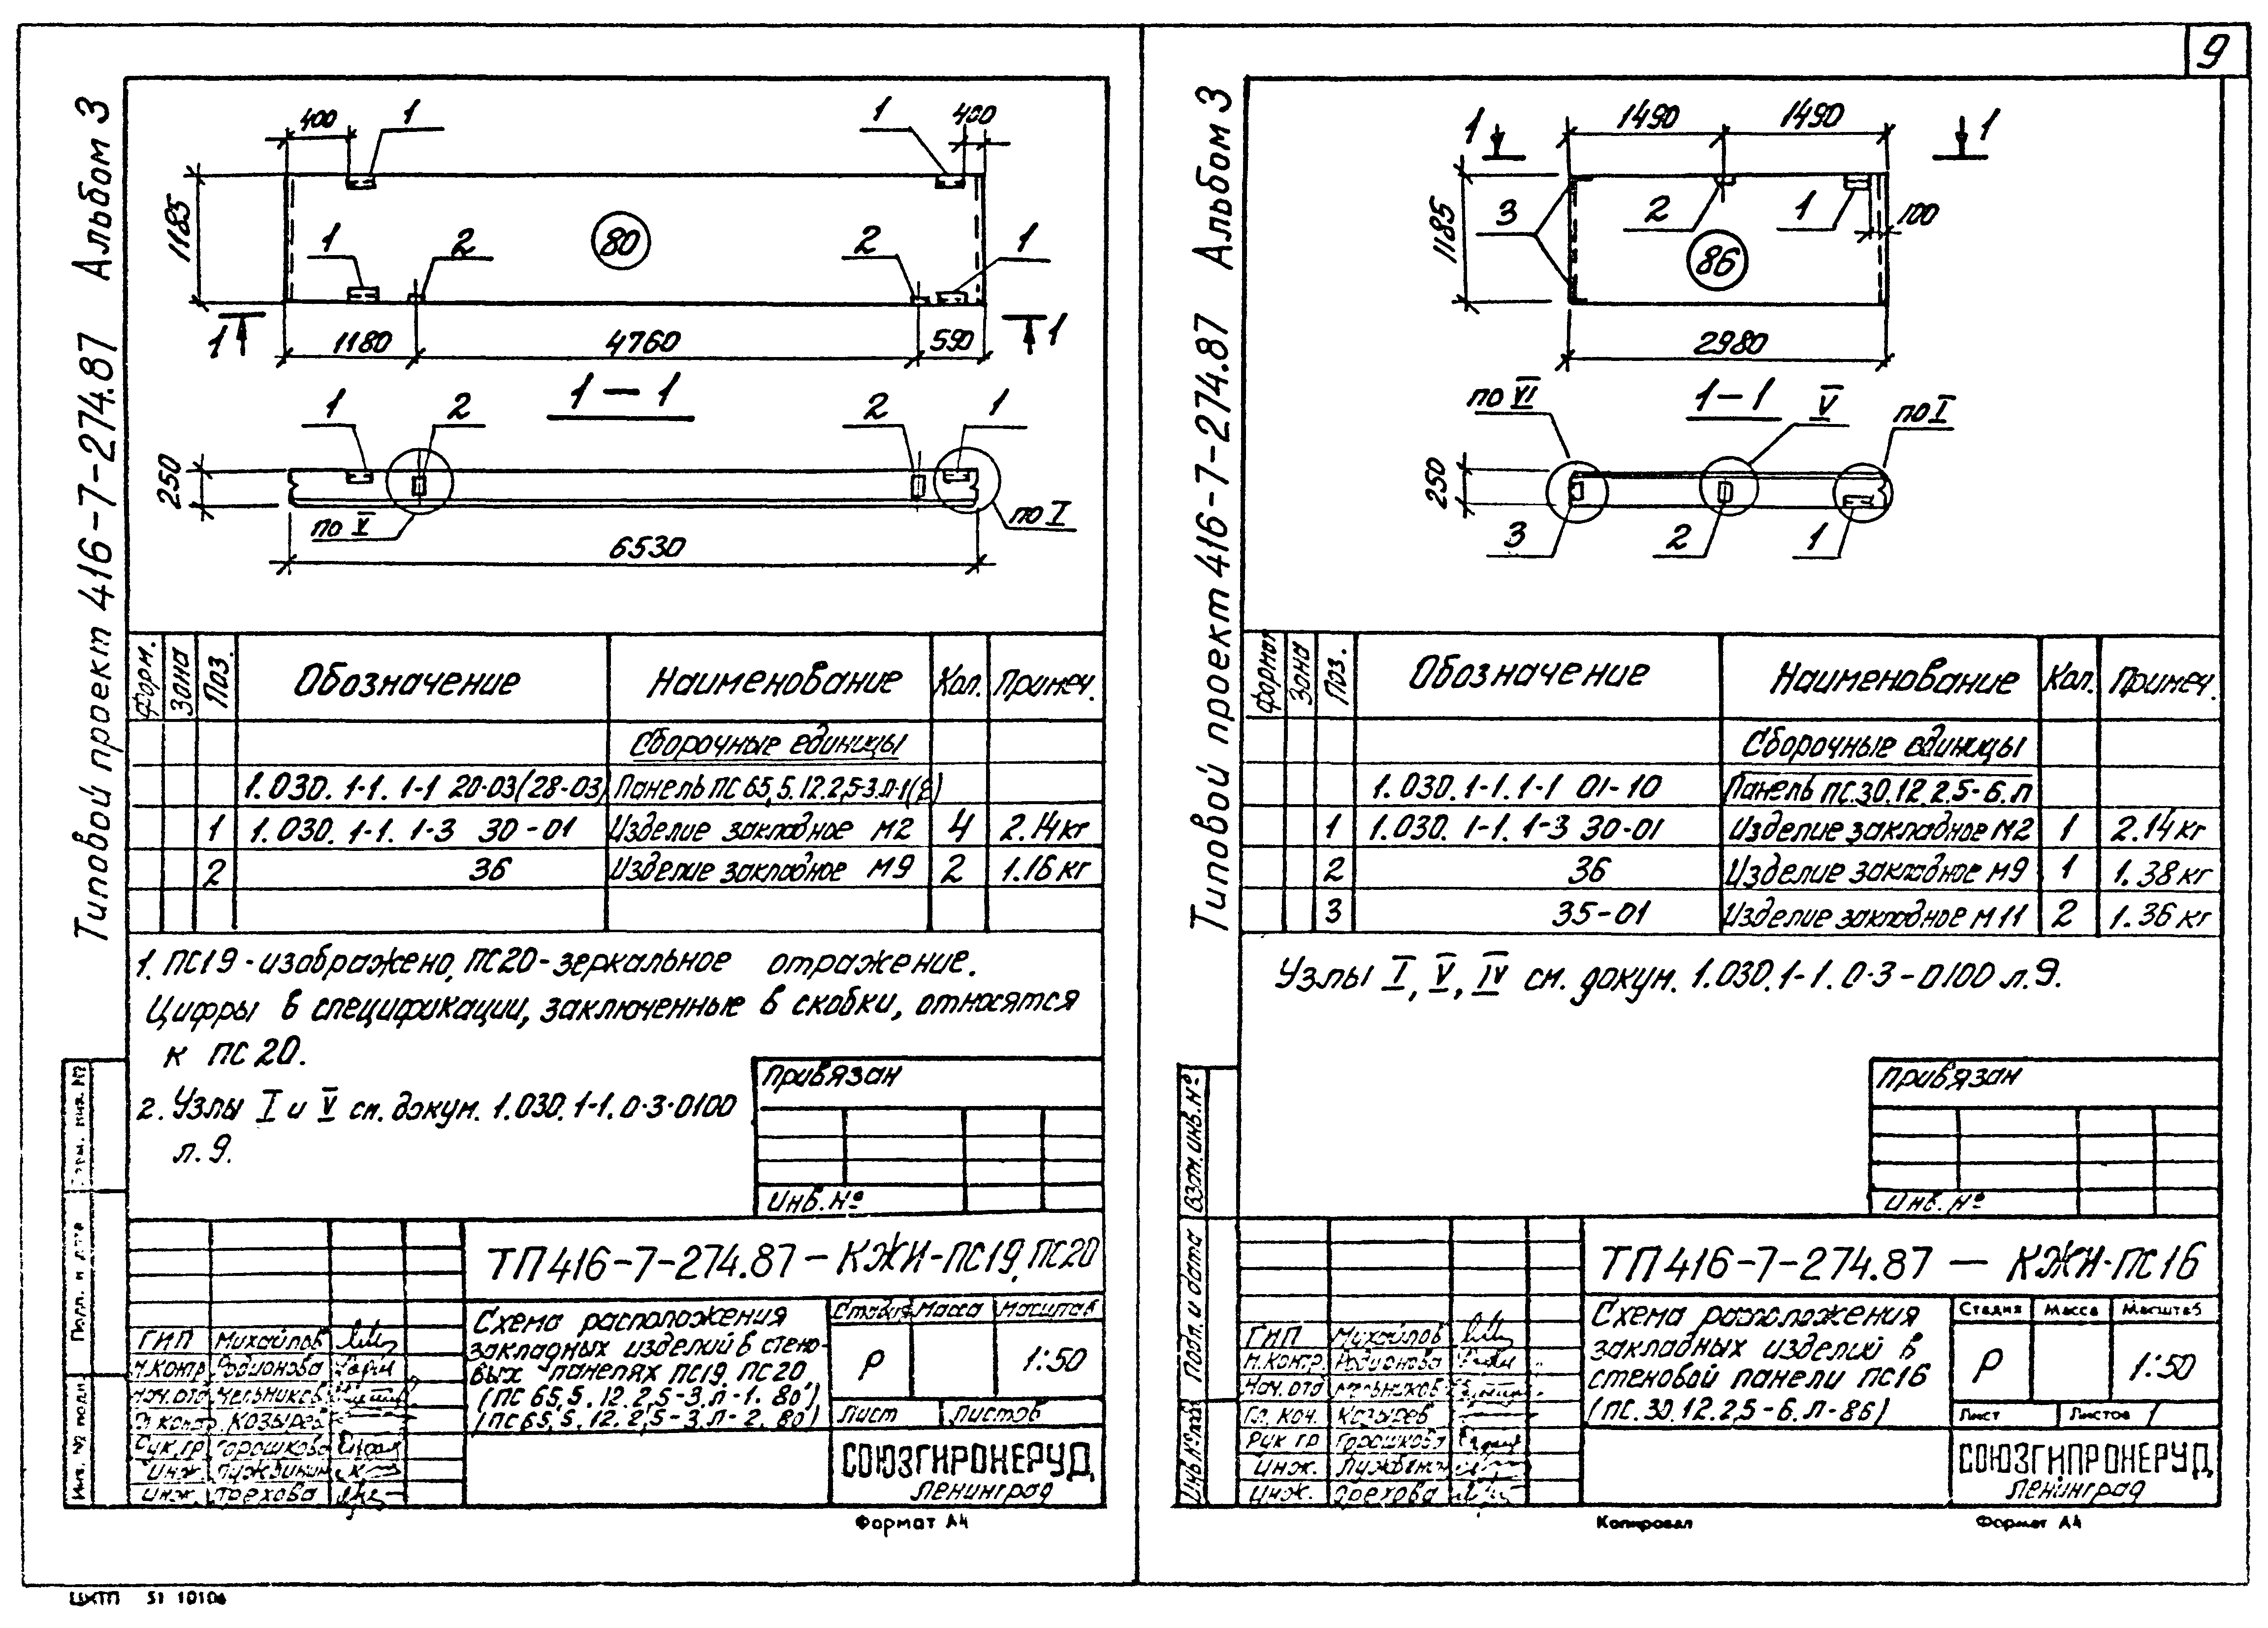 9
Типовой проект 416-7-274.87 Альбом 3
400
1
1
400
1185
1
2
80
2
1
1
1180
4760
590
1
1-1
1
2
2
1
250
по V
по I
6530
Форм.
Зона
Поз.
Обозначение
Наименование
Кол.
Примеч.
Сборочные единицы
1.030.1-1.1-1 20-03(28-03) Панель ПС 65,5.12.2,5-3.Л-1(2)
1 1.030.1-1.1-3 30-01 Изделие закладное М2 4 2.14кг
2 36 Изделие закладное М9 2 1.16кг
1. ПС19-изображено, ПС20-зеркальное отражение.
Цифры в спецификации, заключенные в скобки, относятся
к ПС20.
2. Узлы I и V см. докум. 1.030.1-1.0-3-0100
л.9.
Привязан
Инв.№
ТП416-7-274.87-КЖИ-ПС19,ПС20
Схема расположения
закладных изделий в стено-
вых панелях ПС19, ПС20
(ПС 65,5.12.2,5-3.Л-1.80)
(ПС65,5.12.2,5-3.Л-2.80)
Стадия Масса Масштаб
Р 1:50
Лист Листов
СОЮЗГИПРОНЕРУД
Ленинград
ГИП Михайлов
Н.контр Родионова
Нач.отд Мельников
Козырев
Рук.гр Горошкова
Инж.
Инж. Орехова
Взам. инв. №
Подп. и дата
Инв. № подл
Формат А4
Типовой проект 416-7-274.87 Альбом 3
1
1490
1490
1
1185
3
2
1
100
86
2980
по VI
1-1
V
по I
250
3
2
1
Формат
Зона
Поз.
Обозначение
Наименование
Кол.
Примеч.
Сборочные единицы
1.030.1-1.1-1 01-10 Панель ПС.30.12.2,5-6.Л
1 1.030.1-1.1-3 30-01 Изделие закладное М2 1 2.14кг
2 36 Изделие закладное М9 1 1.38кг
3 35-01 Изделие закладное М11 2 1.36кг
Узлы I, V, IV см. докум. 1.030.1-1.0-3-0100 л.9.
Привязан
Инв.№
ТП416-7-274.87 — КЖИ-ПС16
Схема расположения
закладных изделий в
стеновой панели ПС16
(ПС.30.12.2,5-6.Л-86)
Стадия Масса Масштаб
Р 1:50
Лист Листов 1
СОЮЗГИПРОНЕРУД
Ленинград
ГИП Михайлов
Н.контр. Родионова
Нач.отд Мельников
Гл.кон. Козырев
Рук гр Горошкова
Инж.
Инж. Орехова
Взам.инв.№
Подп. и дата
Инв.№ подл
Копировал
Формат А4
ЦИТП 51 10106